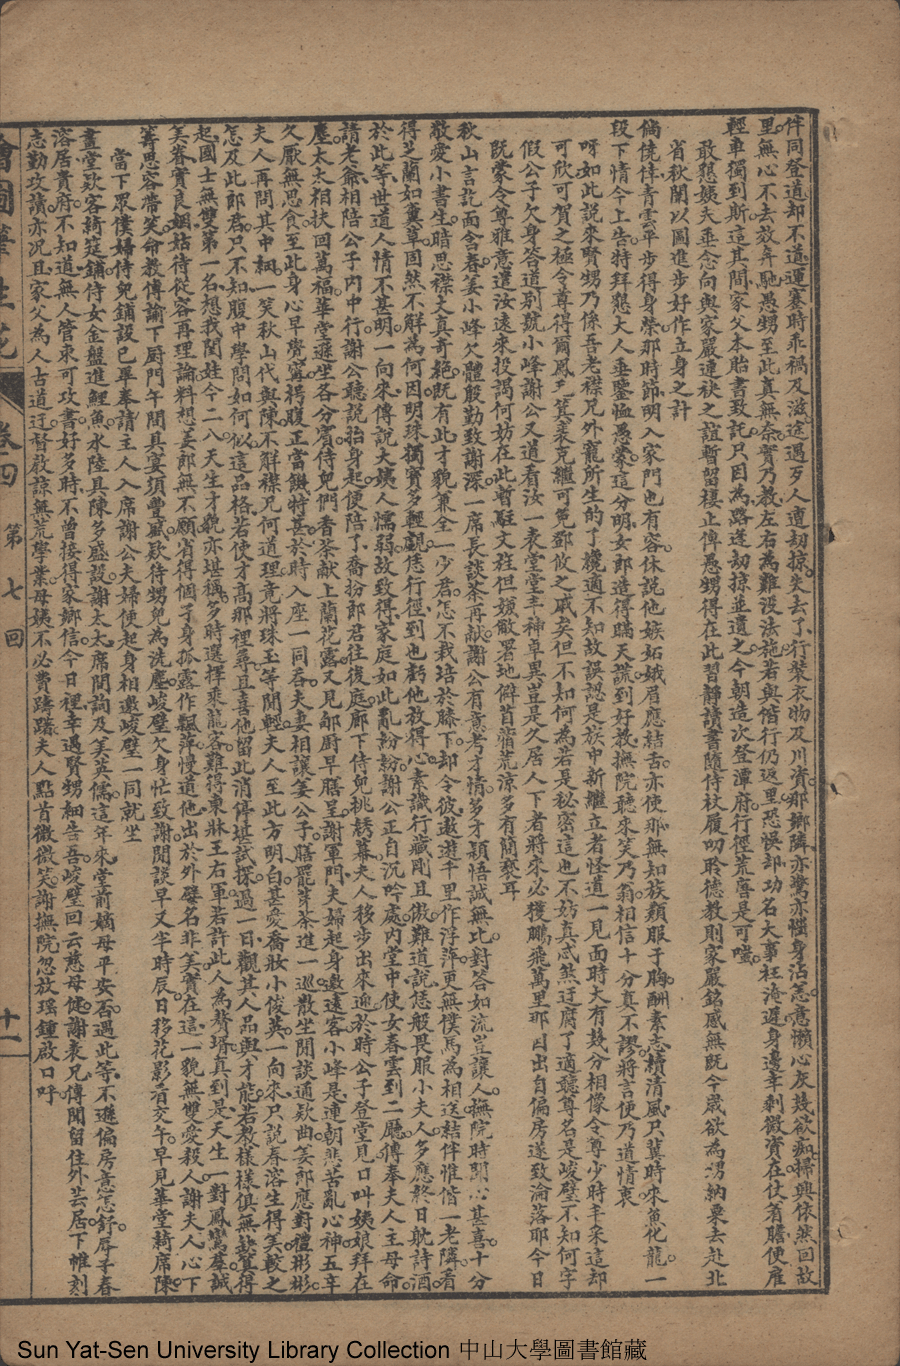 伴同登道却不道運蹇時乖禍及滋途遇歹人遭刧掠失去了行裝衣物及川資那鄉隣亦驚亦惱身沾恙意懶心灰幾欲痴掃興依然回故
里無心不去效奔馳愚甥至此真無奈實乃教左右為難沒法施若與偕行仍返里恐悞却功名大事枉淹遲身邊幸剩微資在仗着膽便雇
輕車獨到斯這其間家父本貽書致託只因為路逢刧掠並遺之今朝造次登潭府行徑荒唐是可嗤
敢懇姨夫垂念向與家嚴連袂之誼暫留棲止俾愚甥得在此習靜讀書隨侍杖履叨聆德教則家嚴銘感無既今歲欲為甥納粟去赴北
省秋闈以圖進步好作立身之計
倘僥倖青雲平步得身榮那時節明入家門也有容休說他嫉妬娥眉應結舌亦使那無知族類服于胸酬素志績清風只冀時來魚化龍一
段下情今上告特拜懇大人垂鑒恤愚蒙這分明女郎造得瞞天謊到好教撫院聽來笑乃翁相信十分真不謬將言便乃道情衷
呀如此說來賢甥乃係吾老襟兄外寵所生的了纔適不知故誤認是族中新繼立者怪道一見面時大有幾分相像令尊少時丰采這却
可欣可賀之極令尊得爾鳳毛箕裘克繼可免鄧攸之戚矣但不知何為若是秘密這也不妨真忒煞迂腐了適聽尊名是峻壁不知何字
假公子欠身答道別號小峰謝公又道看汝一表堂堂丰神卓異豈是久居人下者將來必獲鵬飛萬里那曰出自偏房遂致淪落耶今日
既蒙令尊雅意遣汝遠來投謁何妨在此暫駐文旌但嫒敝署地僻首蓿荒涼多有簡褻耳
秋山言訖面含春姜小峰欠體殷勤致謝深一席長談茶再献謝公有意考才情多才穎悟誠無比對答如流豈讓人撫院時間心甚喜十分
敬愛小書生暗思襟丈真奇絕既有此才貌兼全一少君怎不栽培於膝下却令彼遨遊千里作浮萍更無僕馬為相送結伴惟偕一老隣看
得芝蘭如糞草固然不解為何因明珠獨寶多輕覷恁行徑到也虧他放得心素識行藏剛且傲難道說恁般畏服小夫人多應終日耽詩酒
於此等世道人情不甚明一向來傳說大姨人懦弱故致得家庭如此亂紛紛謝公正自沉吟處内堂中使女春雲到二廳傳奉夫人王母命
請老爺相陪公子内中行謝公聽說抬身起便陪了喬扮郎君往後庭廊下侍兒挑綉幕夫人移步出來迎於時公子登堂見口叫姨娘拜在
塵太太相扶回萬福華堂遜坐各分賓侍兒們香茶献上蘭花露又見郇厨早膳呈謝軍門夫婦起身邀遠客小峰是連朝悲苦亂心神五辛
久厭無思食至此身心早覺寧枵腹正當饑特甚於時入座一同吞夫妻相讓姜公子膳罷芽茶進一巡散坐閒談通欵曲姜郎應對禮彬彬
夫人再問其中細一笑秋山代與陳不解襟兄何道理竟將珠玉等閒輕夫人至此方明白甚愛喬妝小俊英一向來只說春溶生得美較之
怎及此郎君只不知腹中學問如何似這品格若使才高那裡尋且喜他留此消停堪試探過一日觀其人品與才能若教樣樣俱無缺算得
起國士無雙第一名想我閨姓今二八天生才貌亦堪稱多時選擇乘龍客難得東牀王右軍若許此人為贅壻真到是天生一對鳳鸞羣誠
美眷實良姻姑待從容再理論料想姜郎無不願省得個子身孤露作飄萍慢道他出於外嬖名非美實在這一貌無雙愛殺人謝夫人心下
籌思容帶笑命教傳諭下厨門午間具宴須豐盛欵待甥兒為洗塵峻壁欠身忙致謝閒談早又半時辰日移花影看交午早見華堂綺席陳
當下眾僕婦侍兒鋪設已畢奉請主人入席謝公夫婦便起身相邀峻壁一同就坐
畫堂欵客綺筵鋪侍女金盤進鯉魚水陸具陳多盛設謝太太席間詢及姜英儒這年來堂前嫡母平安否遇此等不進偏房意怎舒辱子春
溶居貴府不知道無人管束可攻書好多時不曾接得家鄉信今日裡幸遇賢甥細告吾峻壁回云慈母健謝表兄傳聞留住外芸居下帷刻
志勤攻讀亦况且家父為人古道迂督啟諒無荒學業母姨不必費躊躇夫人點首微微笑謝撫院忽放瑤鍾啟口呼
繪圖筆生花
卷四
第七回
十一
Sun Yat-Sen University Library Collection 中山大學圖書館藏